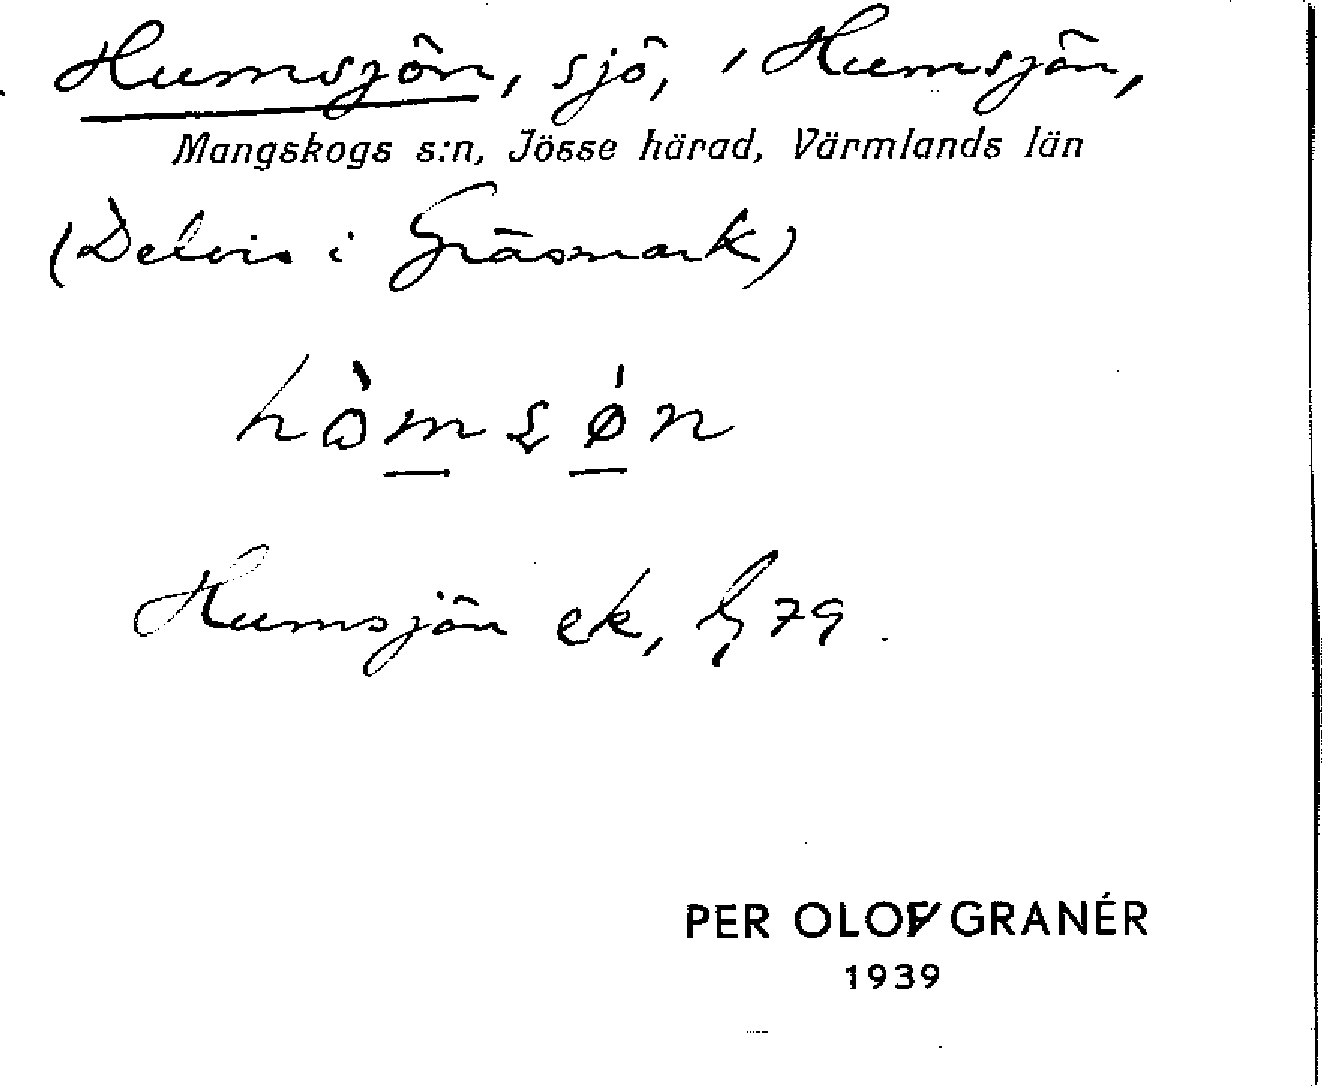 Humsjön, sjö, i Humsjön,
Mangskogs s:n, Jösse härad, Värmlands län
(Delvis i Gräsmark)
hòmsøn
Humsjön ek, 79
PER OLOF GRANÉR
1939